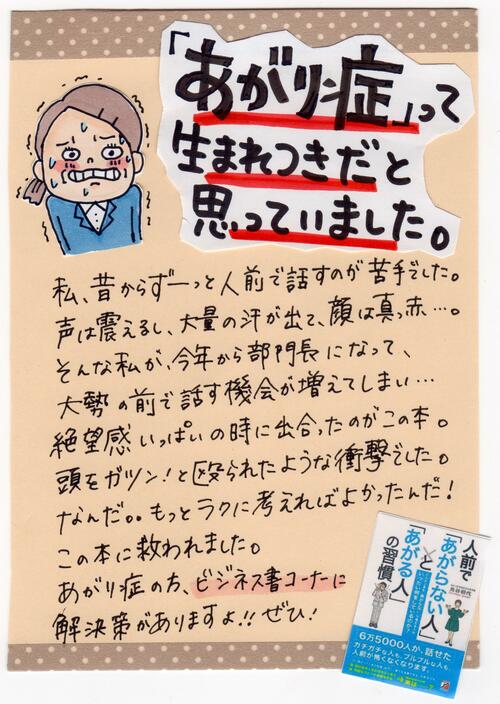 「あがり症」って
生まれつきだと
思っていました。
私、昔からずーっと人前で話すのが苦手でした。
声は震えるし、大量の汗が出て、顔は真っ赤…。
そんな私が、今年から部門長になって、
大勢の前で話す機会が増えてしまい…
絶望感いっぱいの時に出合ったのがこの本。
頭をガツン！と殴られたような衝撃でした。
なんだ。。もっとラクに考えればよかったんだ！
この本に救われました。
あがり症の方、ビジネス書コーナーに
解決策がありますよ!!ぜひ！
人前で
「あがらない人」
と
「あがる人」
の習慣
鳥谷朝代
6万5000人が、話せた
ガチガチな人も、ブルブルな人も、
人前が怖くなくなります。